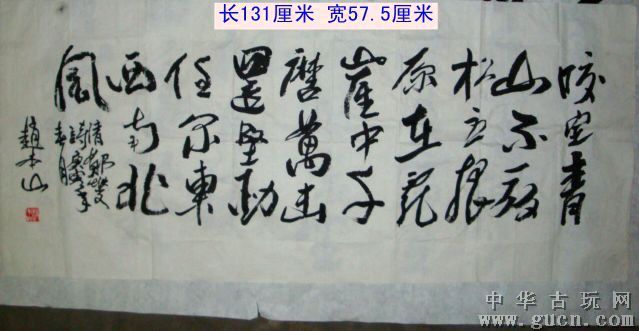 长131厘米 宽57.5厘米
咬定青
山不放
松立根
原在乱
崖中千
磨萬击
還堅勁
任尔東
西南北
風
清鄭燮
春月
趙本山
中华古玩网
www.gucn.com